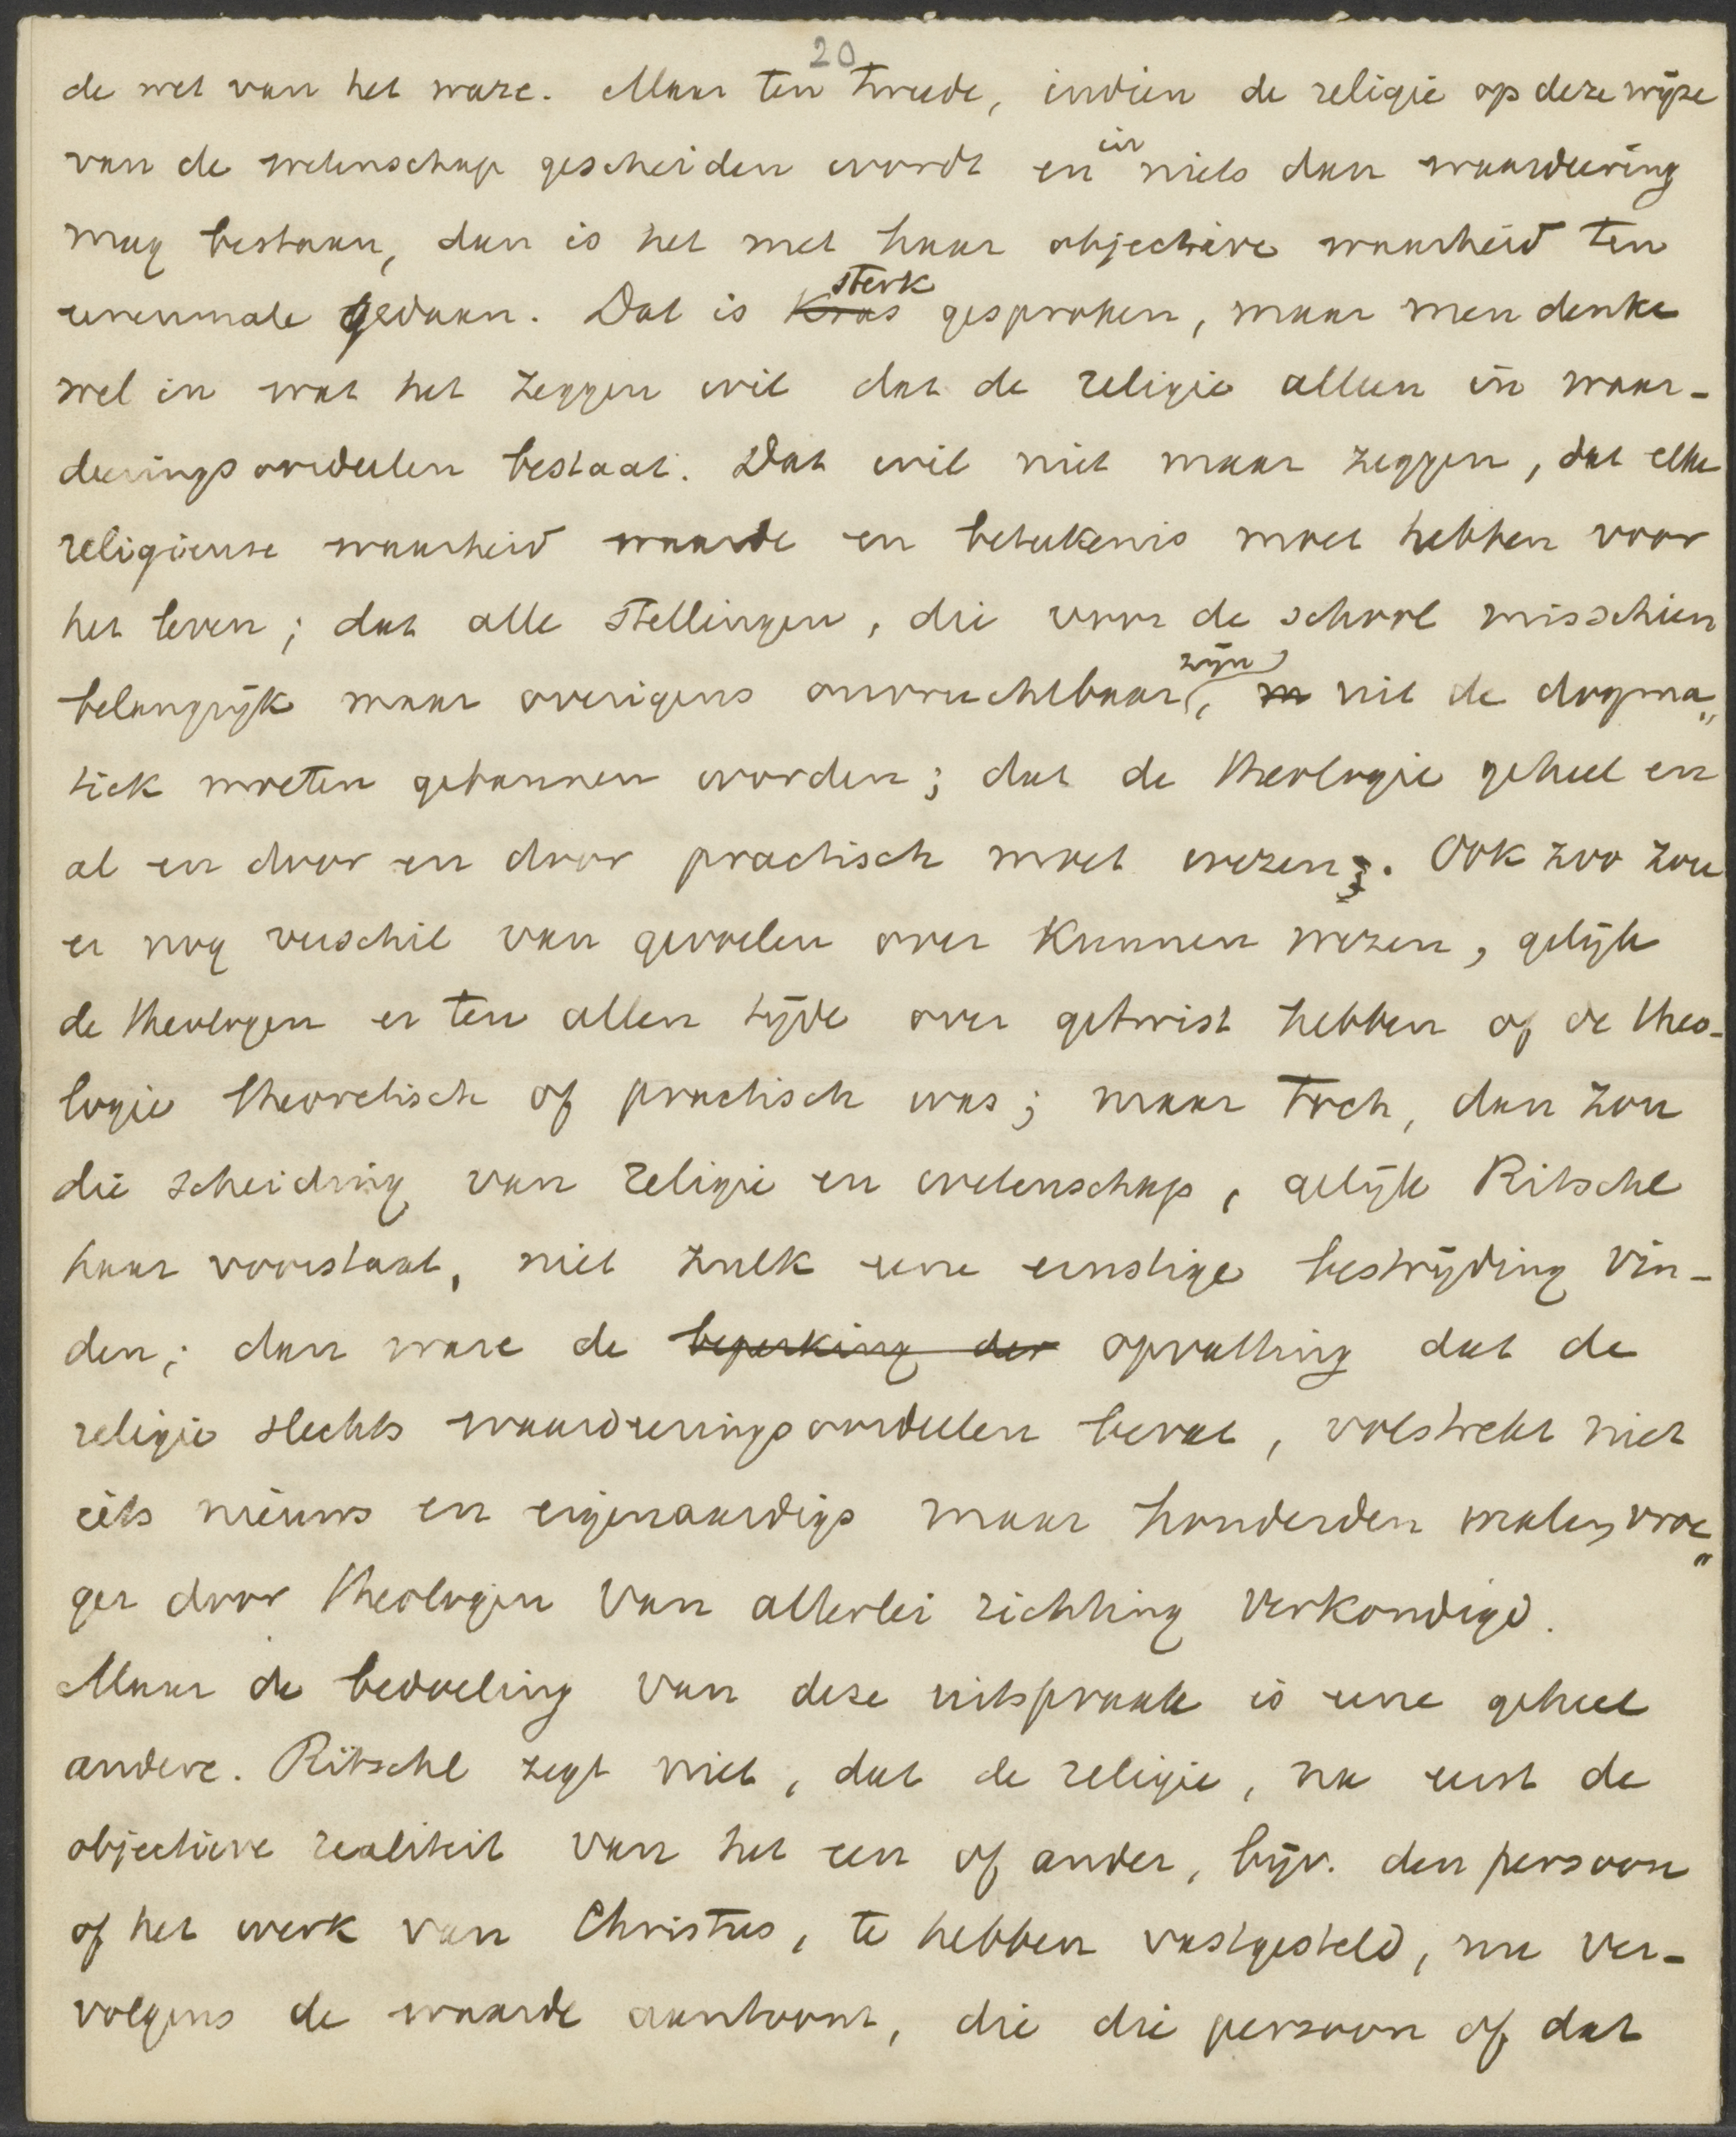 20
de wet van het ware. Maar ten tweede, indien de religie op deze wijze
van de wetenschap gescheiden wordt en in niets dan waardeering
mag bestaan, dan is het met haar objectieve waarheid ten
eenenmale gedaan. Dat is kras sterk gesproken, maar men denke
wel in wat het zeggen wil dat de religie alleen in waar-
deeringsoordeelen bestaat. Dat wil niet maar zeggen, dat elke
religieuse waarheid waarde en beteekenis moet hebben voor
het leven; dat alle stellingen, die voor de school misschien
belangrijk maar overigens onvruchtbaar zijn, uit de dogma„
tiek moeten gebannen worden; dat de theologie geheel en
al en door en door practisch moet wezen. Ook zoo zou
er nog verschil van gevoelen over kunnen wezen, gelijk
de theologen er ten allen tijde over getwist hebben of de theo-
logie theoretisch of practisch was; maar toch, dan zou
die scheiding van religie en wetenschap, gelijk Ritschl
haar voorstaat, niet zulk eene ernstige bestrijding vin-
den; dan ware de beperking der opvatting dat de
religie slechts waardeeringsoordeelen bevat, volstrekt niet
iets nieuws en eigenaardigs maar honderden malen vroe„
ger door theologen van allerlei richting verkondigd.
Maar de bedoeling van deze uitspraak is eene geheel
andere. Ritschl zegt niet, dat de religie, na eerst de
objectieve realiteit van het een of ander, bijv. den persoon
of het werk van Christus, te hebben vastgesteld, nu ver-
volgens de waarde aantoont, die die persoon of dat